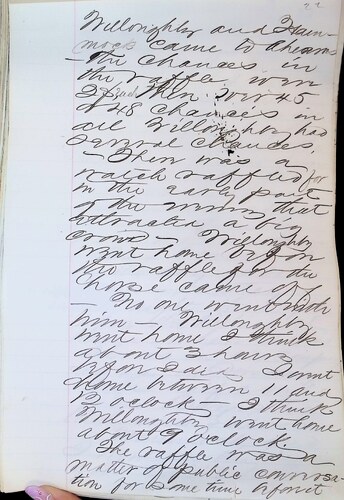 Willoughby and Ham-
mock came to Chesms
- the chances in
the raffle were
I think 45
or 48 chances in
all Willoughby had
several chances.
- There was a
watch raffled for
in the early part
of the evening that
attracted a big
crowd - Willoughby
went home before
the raffle for the
horse came off
- No one went with
him - Willoughby
went home I think
about 3 hours
before I did I went
home between 11 and
12 o'clock - I think
Willoughby went home
about 9 o'clock.
The raffle was a
matter of public conversa-
tion for some time before